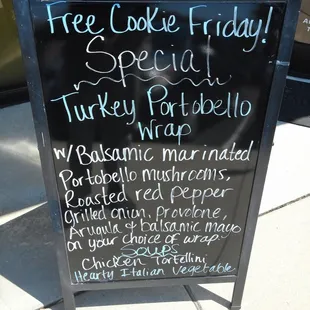 Free Cookie Friday!
Special
Turkey Portobello
Wrap
w/ Balsamic marinated
Portobello mushrooms,
Roasted red pepper
Grilled onion, provolone,
Arugula & balsamic mayo
on your choice of wrap
Soups
Chicken Tortellini
Hearty Italian Vegetable